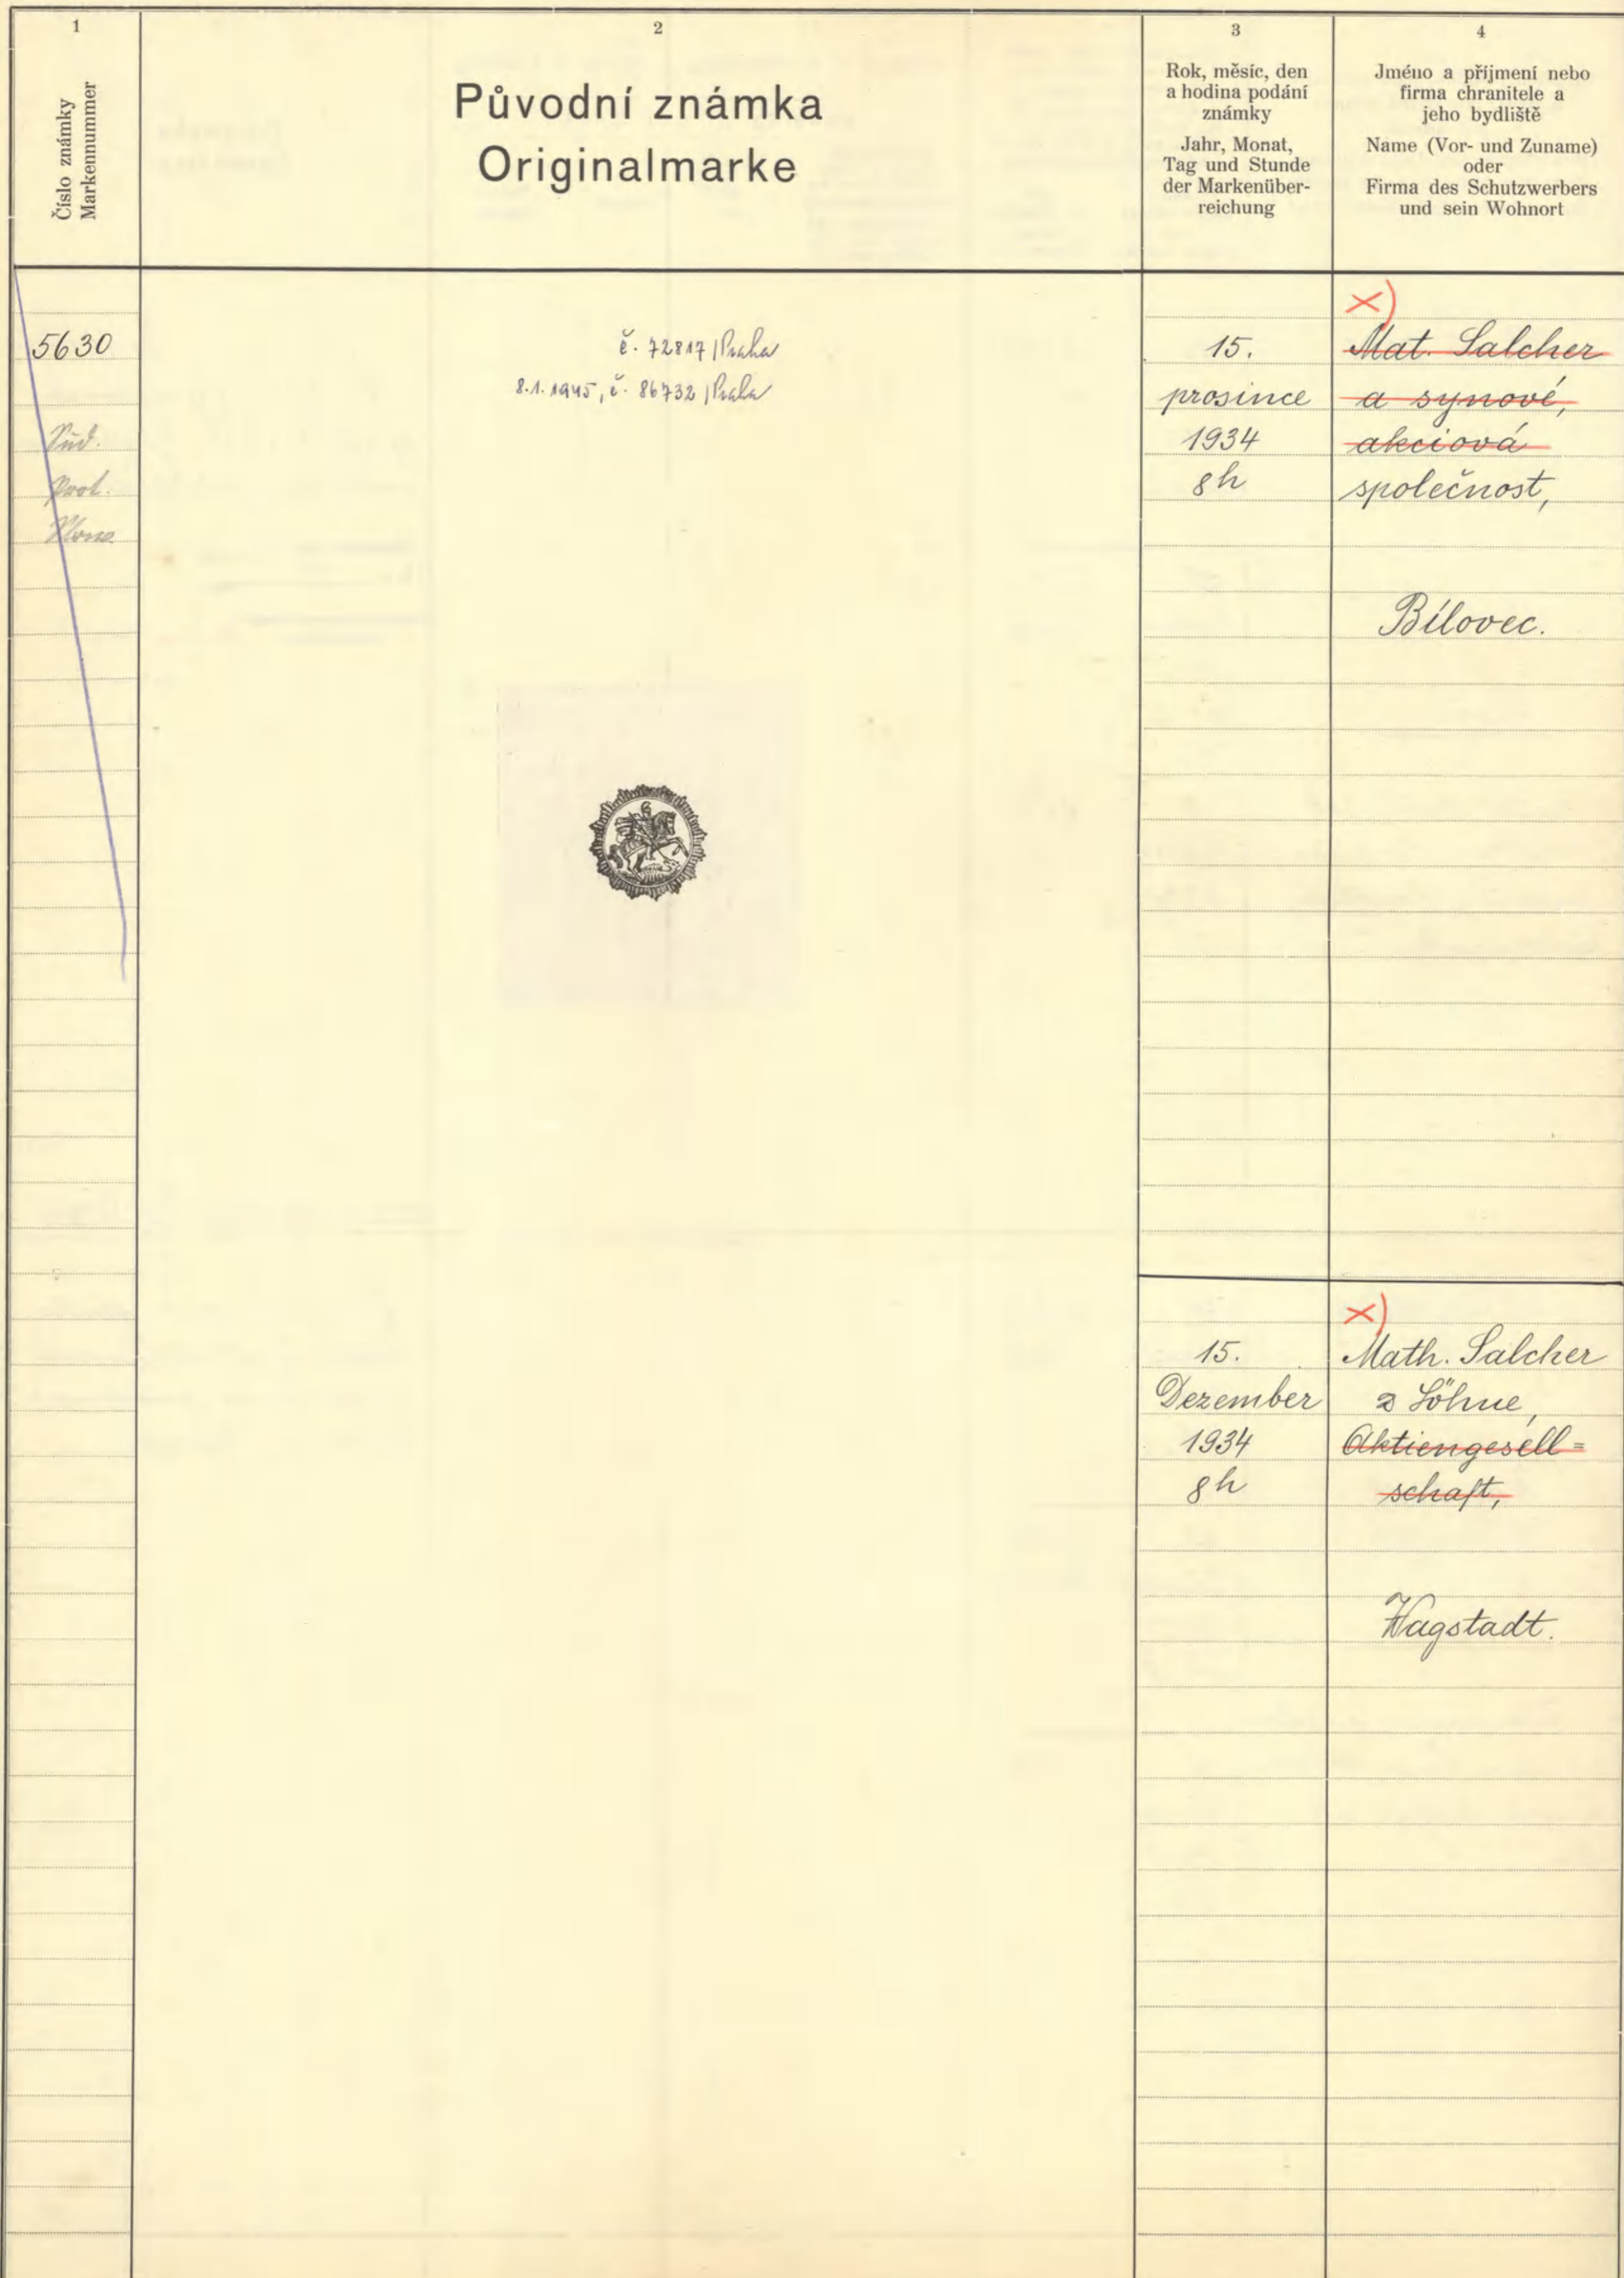 1
Číslo známky
Markennummer
2
Původní známka
Originalmarke
3
Rok, měsíc, den
a hodina podání
známky
Jahr, Monat,
Tag und Stunde
der Markenüber-
reichung
4
Jméno a příjmení nebo
firma chranitele a
jeho bydliště
Name (Vor- und Zuname)
oder
Firma des Schutzwerbers
und sein Wohnort
5630
Prot.
č. 72817/Praha
8.1.1945, č. 86732/Praha
15.
prosince
1934
8h
x)
Mat. Salcher
a synové,
akciová
společnost,
Bílovec.
15.
Dezember
1934
8h
x)
Math. Salcher
& Söhne,
Aktiengesell=
schaft,
Wagstadt.